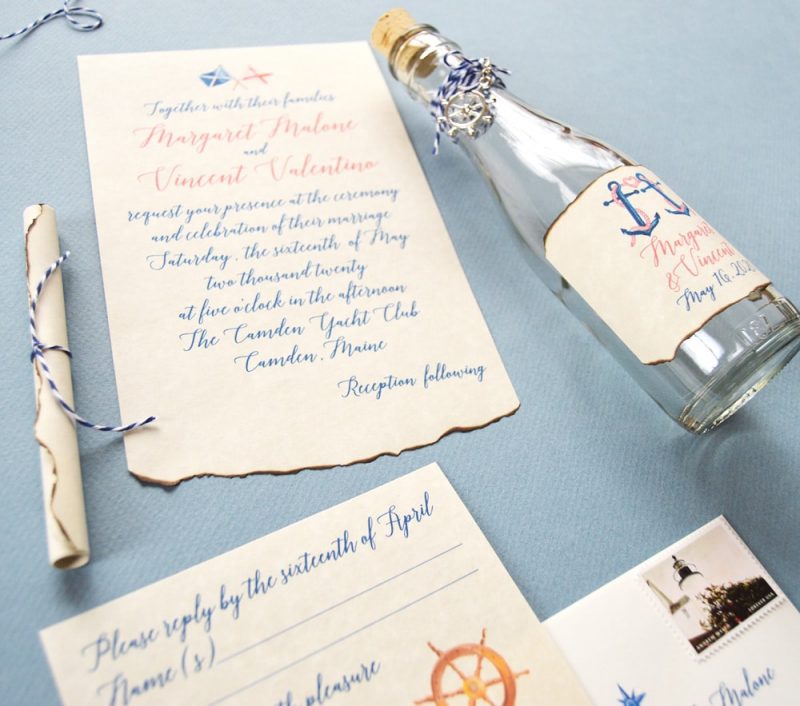 Together with their families
Margaret Malone
and
Vincent Valentino
request your presence at the ceremony
and celebration of their marriage
Saturday, the sixteenth of May
two thousand twenty
at five o'clock in the afternoon
The Camden Yacht Club
Camden, Maine
Reception following
Margaret
& Vincent
May 16, 202
Please reply by the sixteenth of April
Name(s)
pleasure
Malone